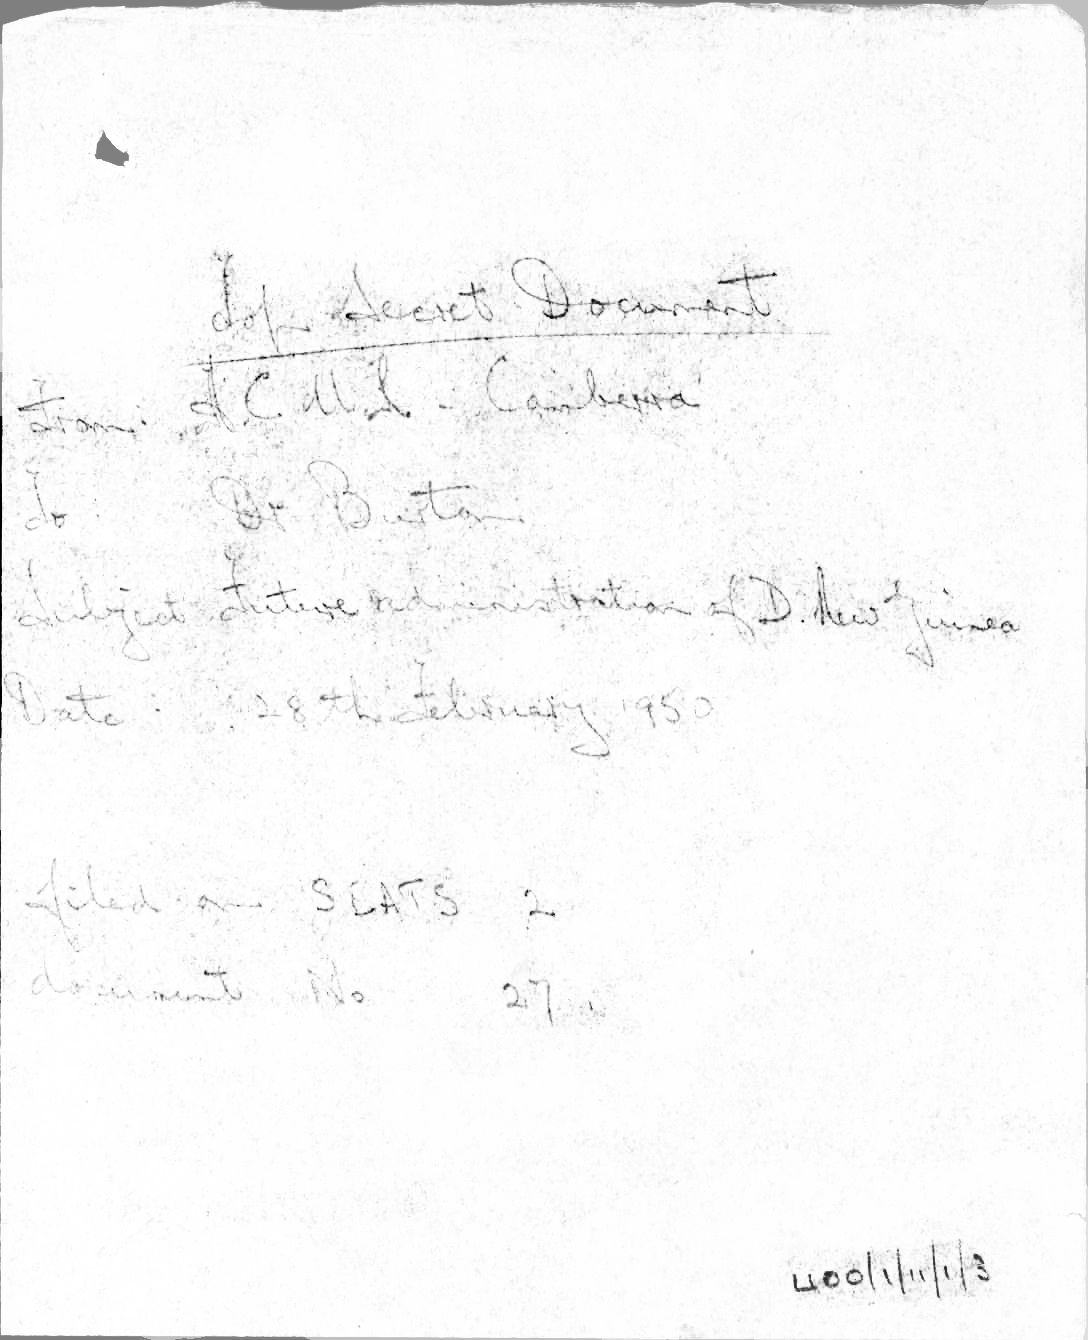 Top Secret Document
From: A.C.M.S. - Canberra
To Dr Burton
Subject Future administration of D. New Guinea
Date : 28th February 1950
filed on SEATS 2
document No 27
400/1/11/1/3